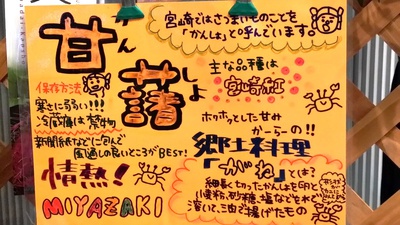 宮崎ではさつまいものことを
「かんしょ」と呼んでいます。
甘藷
かんしょ
主な品種は
宮崎紅
保存方法
寒さに弱い!!!
冷蔵庫は禁物
新聞紙などに包んで
風通しの良いところがBEST!
情熱!
MIYAZAKI
ホクホクとした甘み
かーらーの!!
郷土料理
「がね」とは?
細長く切ったかんしょを卵と
小麦粉、砂糖、塩などをそれで
溶いて、油で揚げたもの